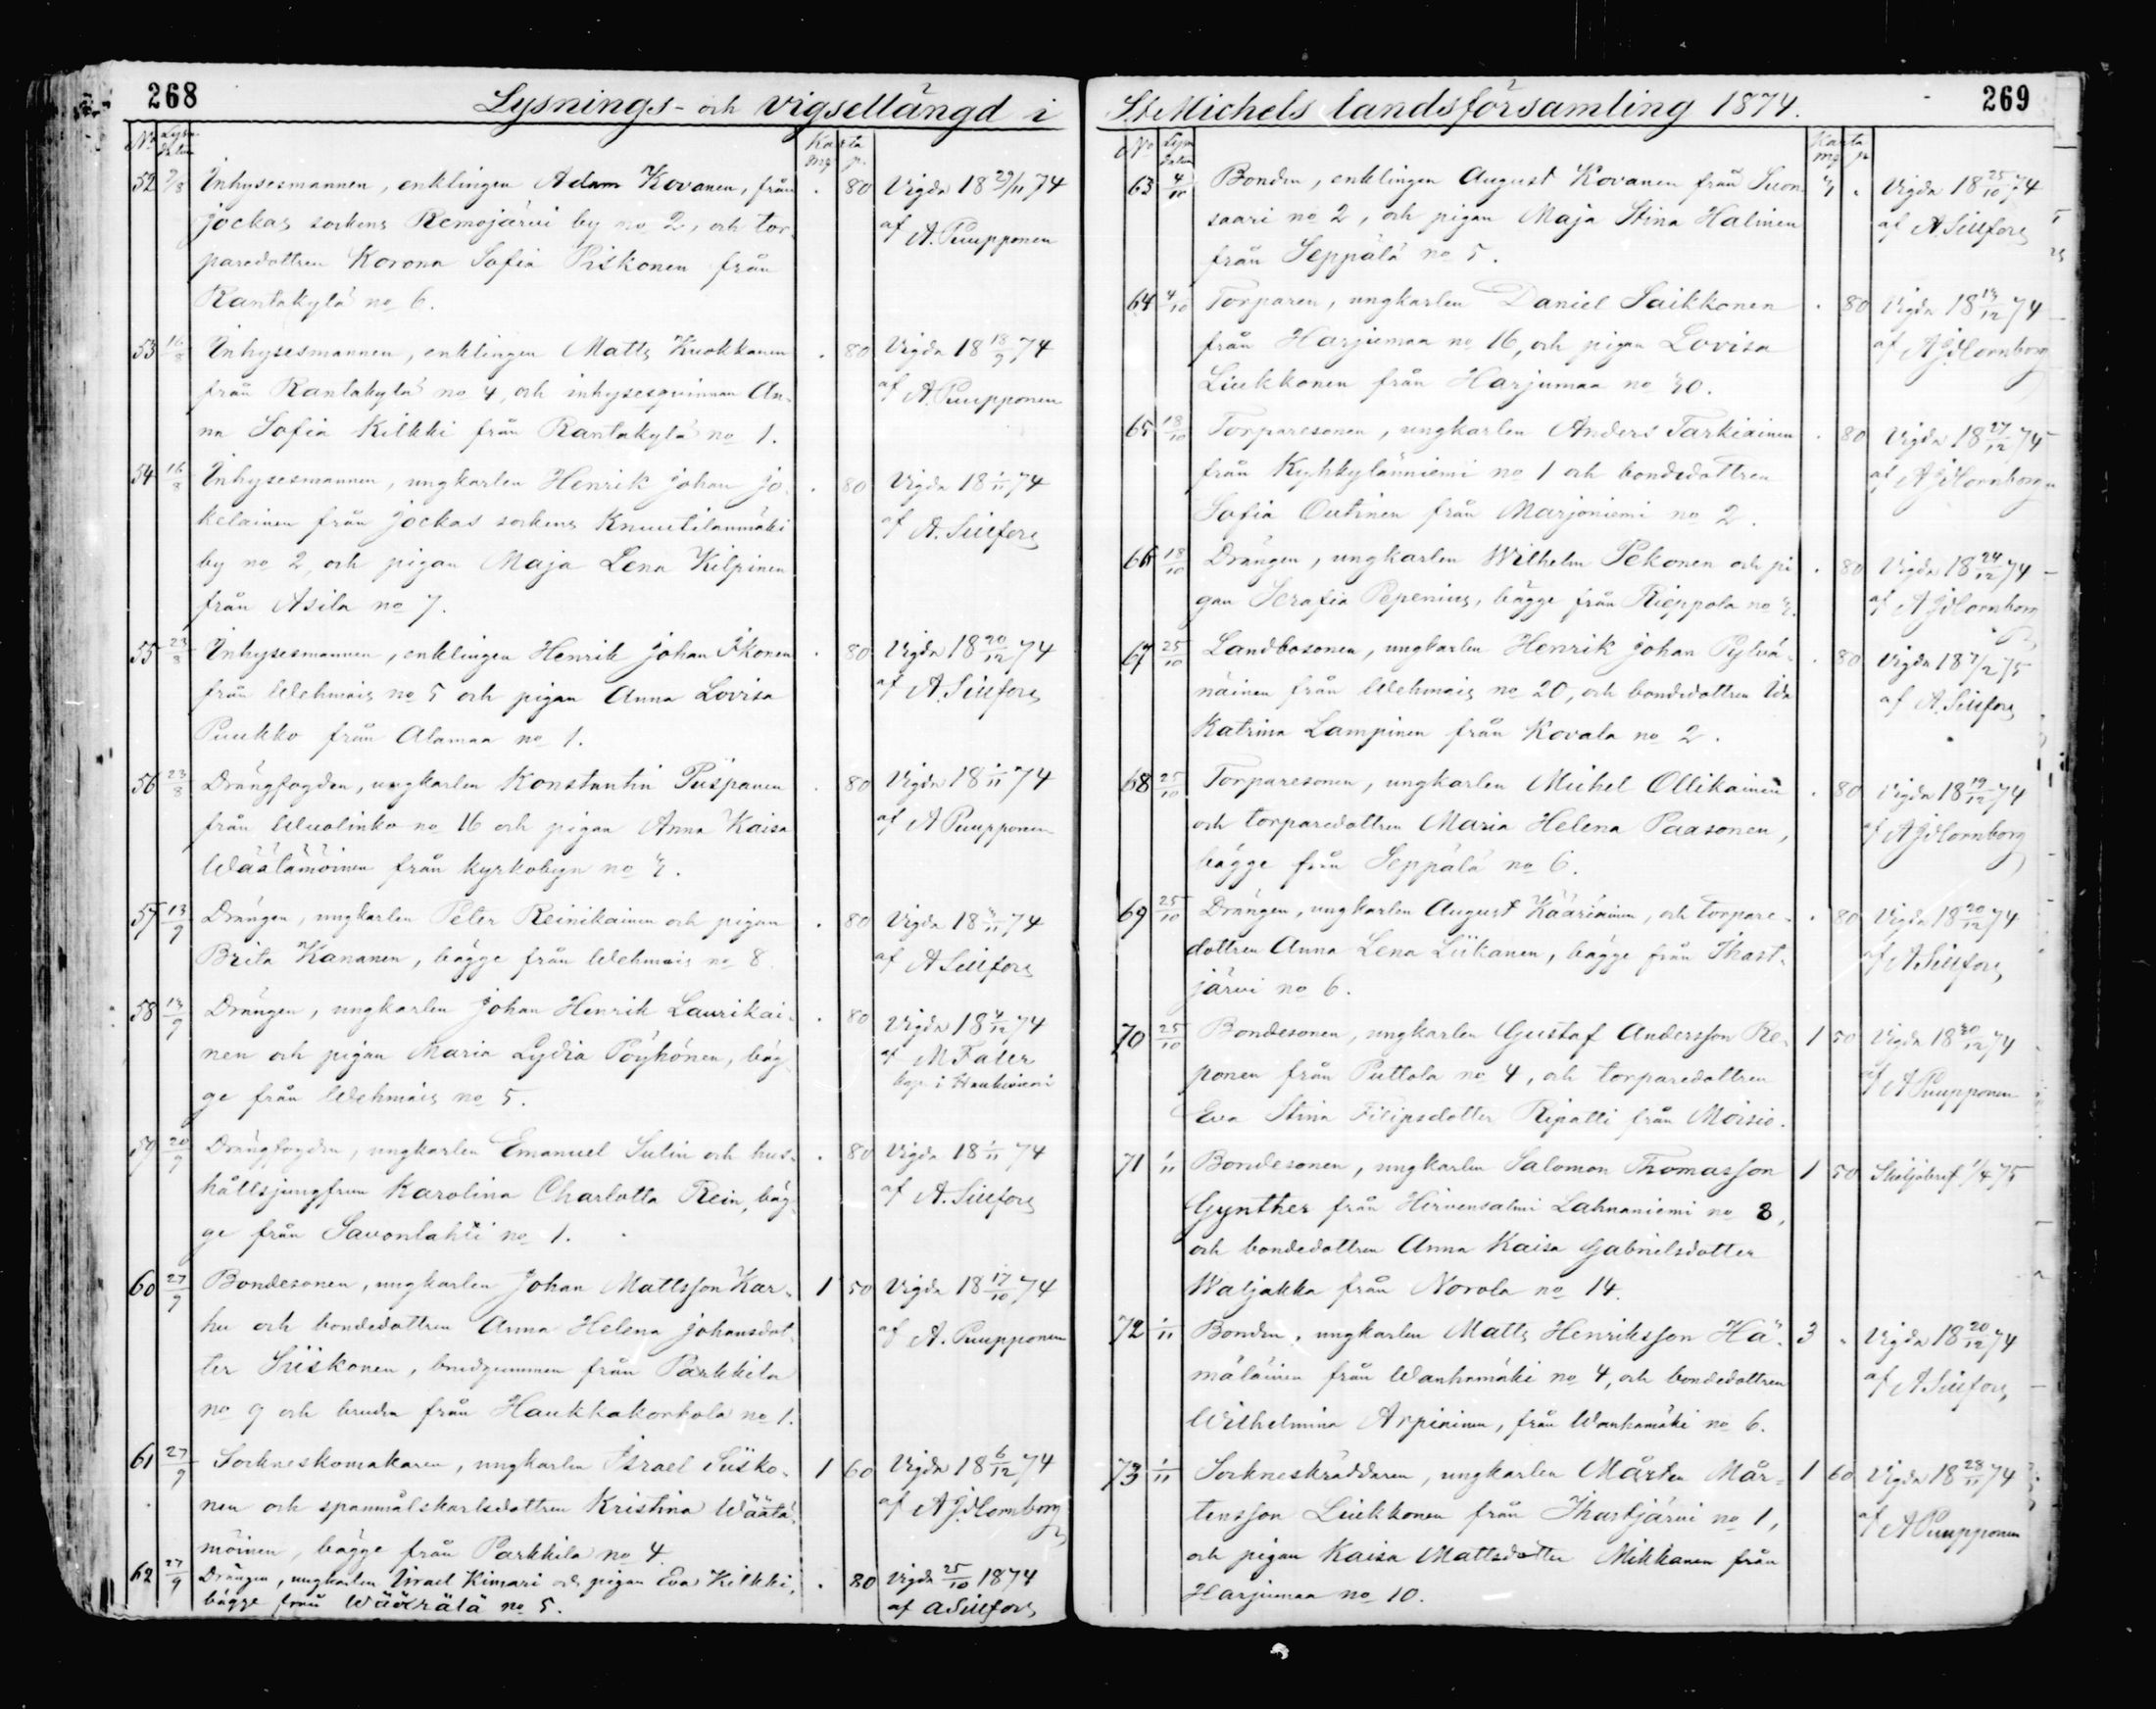 268
Lysnings- och vigsellängd i
No Lysn. datum Karta mg p.
52 9/8 Inhysesmannen, enklingen Adam Kovanen, från . 80 Vigda 18 29/11 74
jockas sockens Remojärvi by no 2, och tor- af A. Puupponen
paredottren Korona Sofia Piskonen från
Rantakylä no 6.
53 16/8 Inhysesmannen, enklingen Matts Kuokkanen . 80 Vigda 18 18/9 74
från Rantakylä no 4, och inhysesqvinnan An- af A. Puupponen
na Sofia Kilkki från Rantakylä no 1.
54 16/8 Inhysesmannen, ungkarlen Henrik Johan Jo- . 80 Vigda 18 1/11 74
kelainen från Jockas sockens Knuutilanmäki af A. Sillfors
by no 2, och pigan Maja Lena Kilpinen
från Asila no 7.
55 23/8 Inhysesmannen, enklingen Henrik Johan Ikonen . 80 Vigda 18 20/12 74
från Wehmais no 5 och pigan Anna Lovisa af A. Sillfors
Puukko från Alamaa no 1.
56 23/8 Drängfogden, ungkarlen Konstantin Piispanen . 80 Vigda 18 1/11 74
från Wuolinko no 16 och pigan Anna Kaisa af A Puupponen
Wäätämöinen från kyrkobyn no 3.
57 13/9 Drängen, ungkarlen Peter Reinikainen och pigan . 80 Vigda 18 /11 74
Brita Kananen, bägge från Wehmais no 8. af A Sillfors
58 13/9 Drängen, ungkarlen Johan Henrik Laurikai- . 80 Vigda 18 4/12 74
nen och pigan Maria Lydia Pöyhönen, bäg- af M Fater
ge från Wehmais no 5. kap. i Haukivuori
59 20/9 Drängfogden, ungkarlen Emanuel Sutin och hus- . 80 Vigda 18 1/11 74
hållsjungfrun Karolina Charlotta Rein, bäg- af A. Sillfors
ge från Savonlahti no 1.
60 27/9 Bondesonen, ungkarlen Johan Mattsson Kar- 1 50 Vigda 18 17/10 74
hu och bondedottren Anna Helena Johansdot- af A. Puupponen
ter Siiskonen, brudgummen från Parkkila
no 9 och bruden från Haukkakorkola no 1.
61 27/9 Sockneskomakaren, ungkarlen Israel Siisko- 1 60 Vigda 18 6/12 74
nen och spannmålskarlsdottren Kristina Wäätä- af A J Hornborg
möinen, bägge från Parkkila no 4.
62 27/9 Drängen, ungkarlen Israel Kimari och pigan Eva Kilkki, . 80 Vigda 25/10 1874
bägge från Wäärälä no 5. af A Sillfors
269
St Michels landsförsamling 1874.
No Lysn datum Karta mg p.
63 4/10 Bonden, enklingen August Kovanen från Suon- 3 . Vigda 18 25/10 74
saari no 2, och pigan Maja Stina Halinen af A. Sillfors
från Seppälä no 5.
64 4/10 Torparen, ungkarlen Daniel Saikkonen . 80 Vigda 18 13/12 74
från Harjumaa no 16, och pigan Lovisa af A J Hornborg
Liukkonen från Harjumaa no 30.
65 18/10 Torparesonen, ungkarlen Anders Tarkiainen . 80 Vigda 18 27/12 74
från Kyhkylänniemi no 1 och bondedottren af A J Hornborg
Sofia Outinen från Marjoniemi no 2.
66 18/10 Drängen, ungkarlen Wilhelm Pekonen och pi- . 80 Vigda 18 24/12 74
gan Serafia Pepenius, bägge från Rieppola no 3. af A J Hornborg
67 25/10 Landbosonen, ungkarlen Henrik Johan Pylvä- . 80 Vigda 18 7/2 75
näinen från Wehmais no 20, och bondedottren Ida af A. Sillfors
Katrina Lampinen från Kovala no 2.
68 25/10 Torparesonen, ungkarlen Michel Ollikainen . 80 Vigda 18 19/12 74
och torparedottren Maria Helena Paasonen, af A J Hornborg
bägge från Seppälä no 6.
69 25/10 Drängen, ungkarlen August Kääriäinen, och torpare- . 80 Vigda 18 20/12 74
dottren Anna Lena Liikanen, bägge från Ihast- af A Sillfors
järvi no 6.
70 25/10 Bondesonen, ungkarlen Gustaf Andersson Re- 1 50 Vigda 18 30/12 74
ponen från Puttola no 4, och torparedottren af A Puupponen
Eva Stina Filipsdotter Ripatti från Moisio.
71 1/11 Bondesonen, ungkarlen Salomon Thomasson 1 50 Skiljobref 1/4 75
Gynther från Hirvensalmi Lahnaniemi no 8,
och bondedottren Anna Kaisa Gabrielsdotter
Waljakka från Norola no 14.
72 1/11 Bonden, ungkarlen Matts Henriksson Hä- 3 . Vigda 18 20/12 74
mäläinen från Wanhamäki no 4, och bondedottren af A Sillfors
Wilhelmina Arpiainen, från Wanhamäki no 6.
73 1/11 Sockneskräddaren, ungkarlen Mårten Mår- 1 60 Vigda 18 28/11 74
tensson Liukkonen från Ihastjärvi no 1, af A Puupponen
och pigan Kaisa Mattsdotter Mikkanen från
Harjumaa no 10.